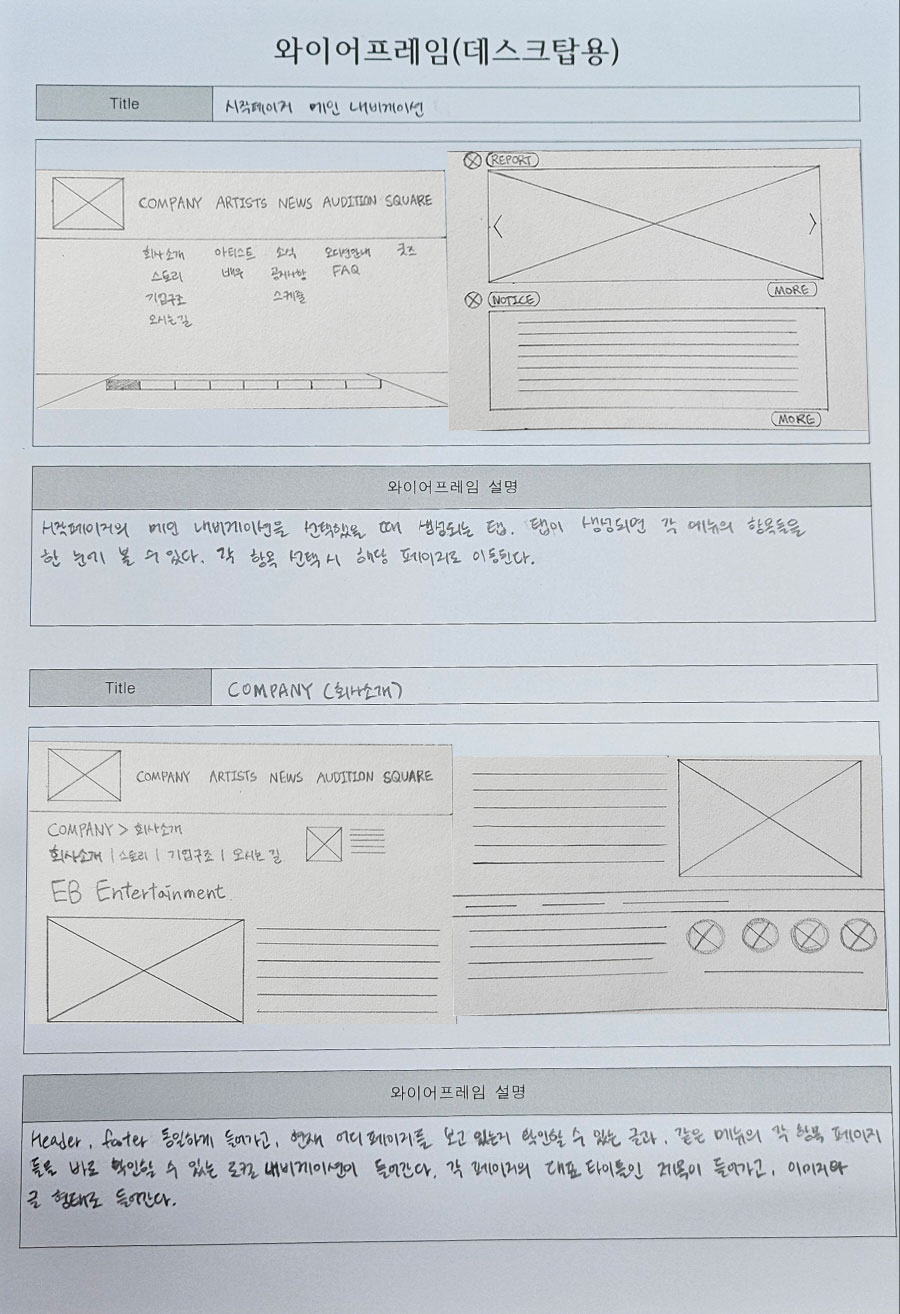 와이어프레임(데스크탑용)
Title
시작페이지 메인 내비게이션
COMPANY ARTISTS NEWS AUDITION SQUARE
회사소개 아티스트 소식 오디션안내 굿즈
스토리 배우 공지사항 FAQ
기업구조 스케줄
오시는길
REPORT
< >
MORE
NOTICE
MORE
와이어프레임 설명
시작페이지의 메인 내비게이션을 선택했을 때 생성되는 탭. 탭이 생성되면 각 메뉴의 항목들을
한 눈에 볼 수 있다. 각 항목 선택 시 해당 페이지로 이동된다.
Title
COMPANY (회사소개)
COMPANY ARTISTS NEWS AUDITION SQUARE
COMPANY > 회사소개
회사소개 | 스토리 | 기업구조 | 오시는 길
EB Entertainment
와이어프레임 설명
Header, footer 동일하게 들어가고, 현재 어디 페이지를 보고 있는지 확인할 수 있는 글과, 같은 메뉴의 각 항목 페이지
들을 바로 확인할 수 있는 로컬 내비게이션이 들어간다. 각 페이지의 대표 타이틀인 제목이 들어가고, 이미지와
글 형태로 들어간다.